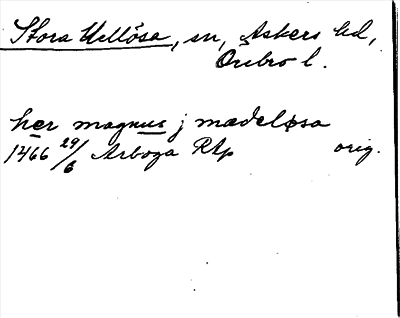 Stora Mellösa, sn, Askers hd,
Örebro l.
her magnus j mædeløsa
1466 29/6 Arboga RAp orig.